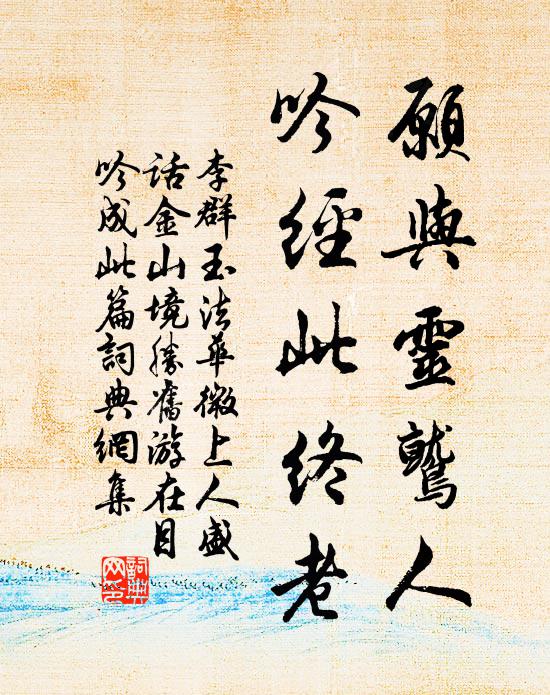 願與靈鷲人
吟經此終老
李群玉法華微上人盛
話金山境勝舊游在目
吟成此篇詞典網集
詞典
网